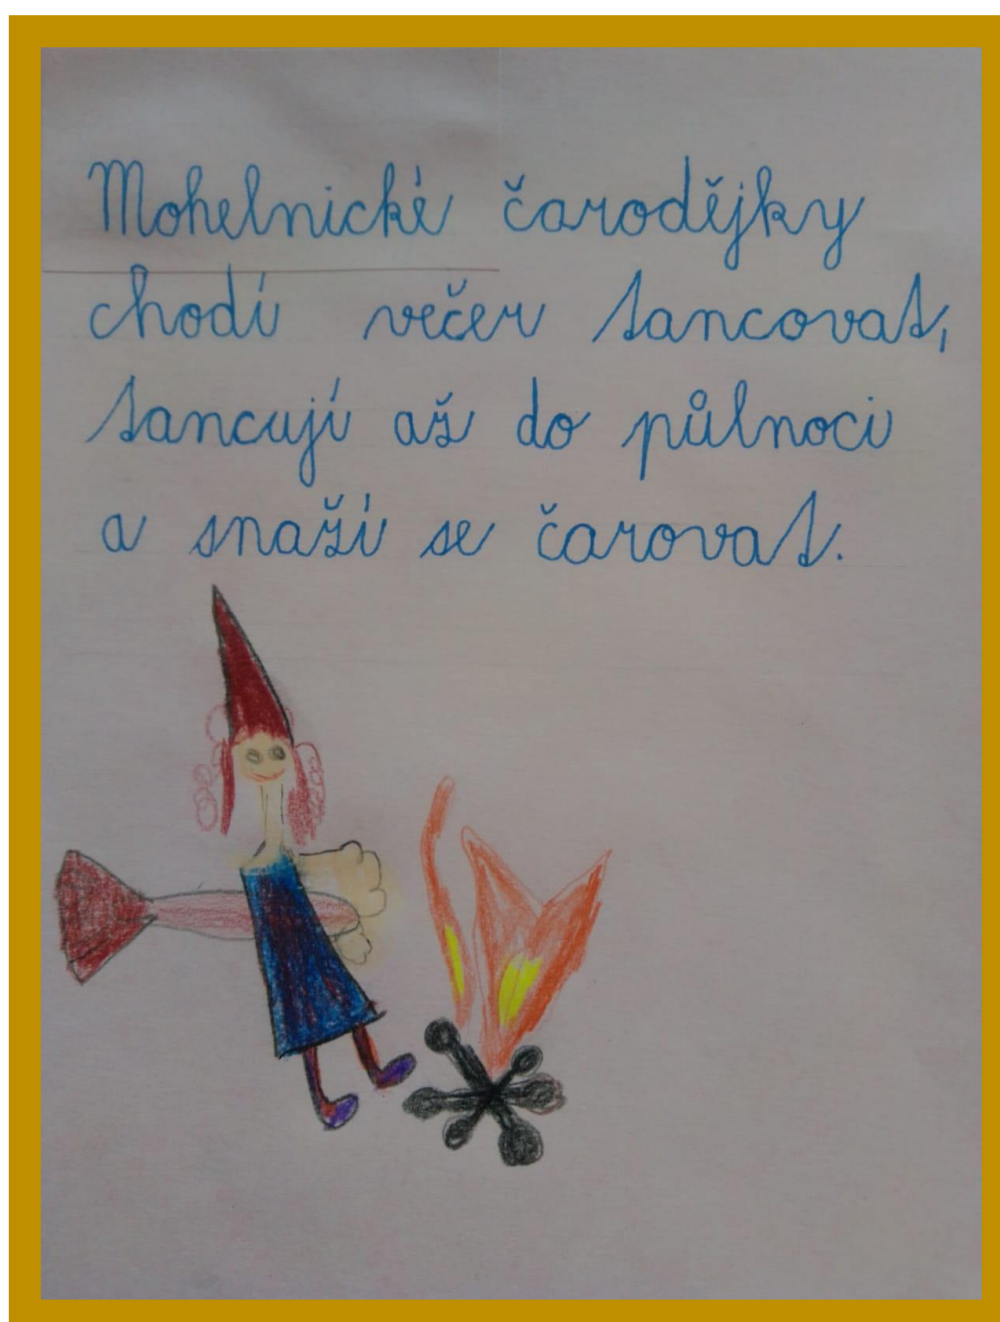 Mohelnické čarodějky
chodí večer tancovat,
tancují až do půlnoci
a snaží se čarovat.